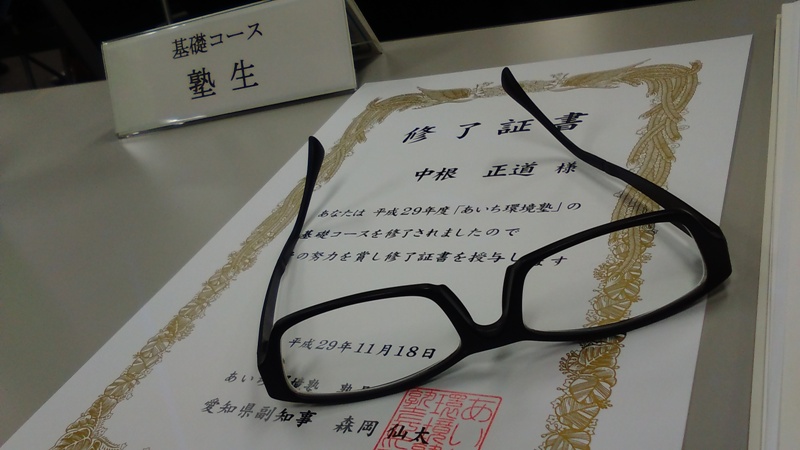 基礎コース
塾生
修了証書
中根 正道 様
あなたは 平成29年度「あいち環境塾」の
基礎コースを修了されましたので
の努力を賞し修了証書を授与します
平成29年11月18日
あいち環境塾 塾長
愛知県副知事 森岡 仙太
あいち
環境塾